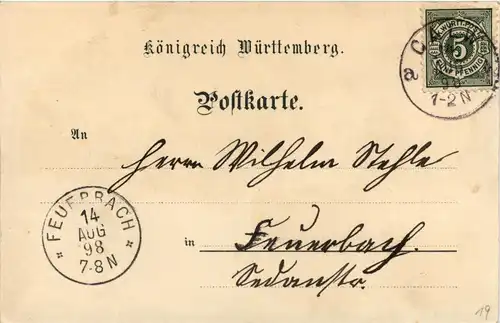 K. WÜRTTEMBERG
5
FÜNF PFENNIG
a
1-2 N
Königreich Württemberg.
Postkarte.
An
Herrn Wilhelm Stehle
in Feuerbach.
Sedanstr.
FEUERBACH
14
AUG
98
7-8 N
19